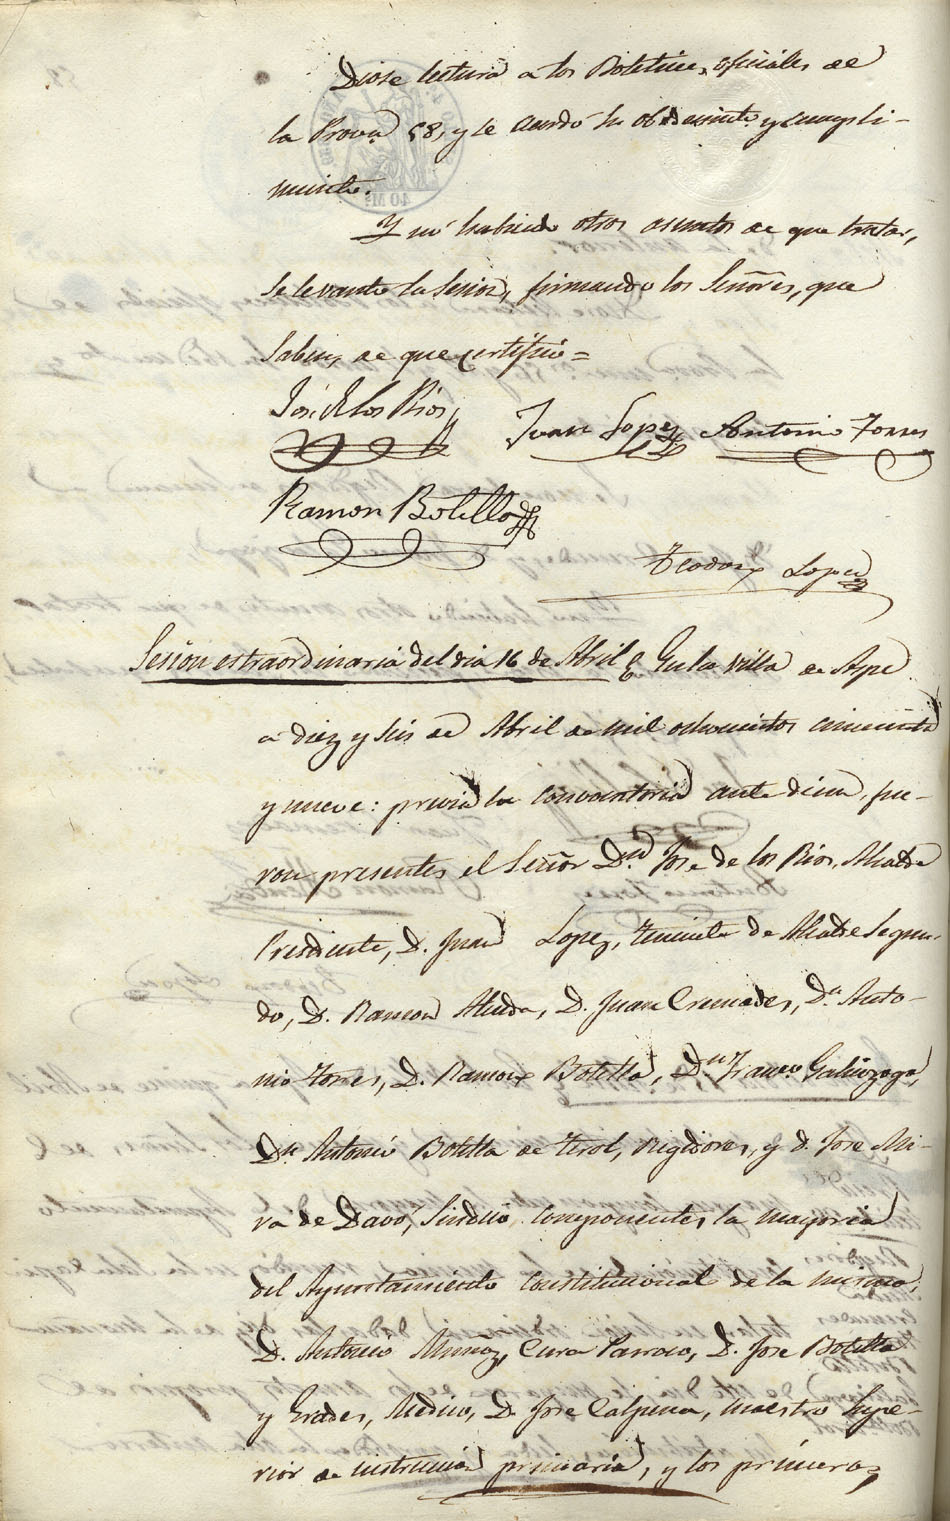 Diose lectura a los Boletines oficiales de
la Prova 58, y se acordó su obedecimto y cumpli-
miento.
Y no habiendo otros asuntos de que tratar,
se levanto la sesion, firmando los Señores, que
saben, de que certifico =
José de los Rios
Juan Lopez
Antonio Torres
Ramon Botella
Teodoro Lopez
Sesion estraordinaria del dia 16 de Abril En la villa de Aspe
a diez y seis de Abril de mil ochocientos cincuenta
y nueve: previa la convocatoria ante diem, fue-
ron presentes el Señor Dn Jose de los Rios, Alcalde
Presidente, D. Juan Lopez, teniente de Alcalde segun-
do, D. Ramon Alenda, D. Juan Cremades, Dn Anto-
nio Torres, D. Ramon Botella, Dn Franco Galinzoga,
Dn Antonio Botella de Terol, Regidores, y D. Jose Mi-
ra de Davó, Sindico, componentes la mayoria
del Ayuntamiento constitucional de la misma,
D. Antonio Muñoz, Cura Parroco, D. Jose Botella
y Erades, Medico, D. Jose Calpena, maestro supe-
rior de instruccion primaria, y los primeros
40 Ms